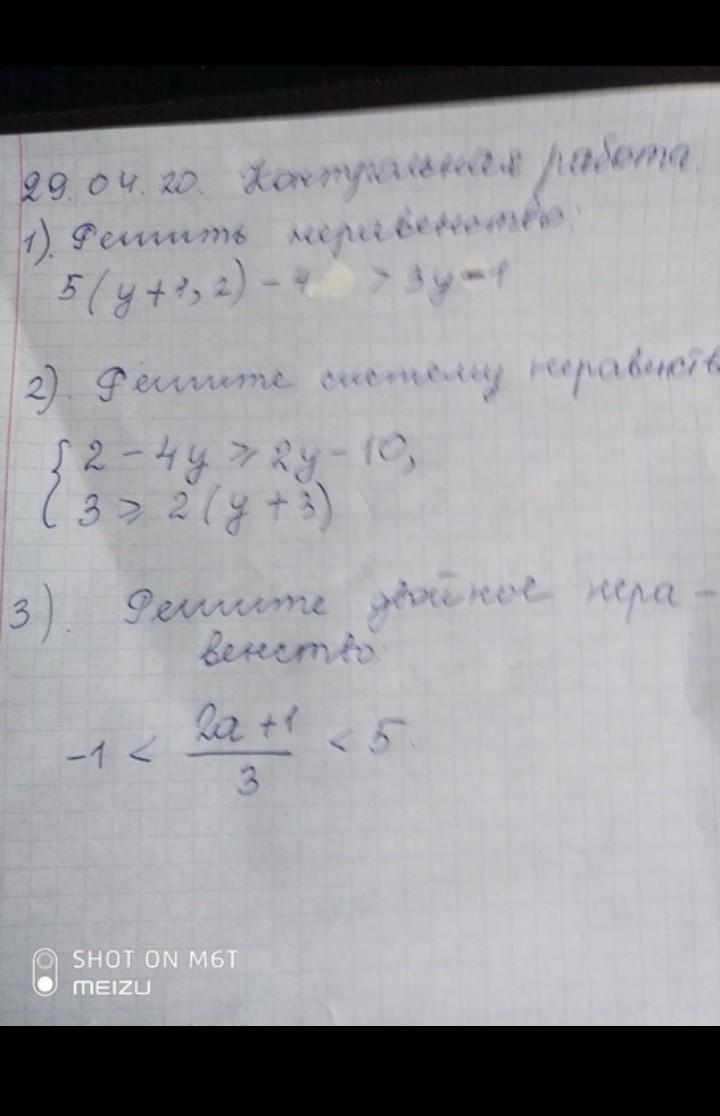 29.04.20. Контрольная работа.
1). Решить неравенство:
5(y+1,2)-4 > 3y-1
2). Решите систему неравенств
{ 2-4y ⩾ 2y-10,
3 ⩾ 2(y+3)
3). Решите двойное нера-
венство:
-1 < (2a+1)/3 < 5.
SHOT ON M6T
MEIZU